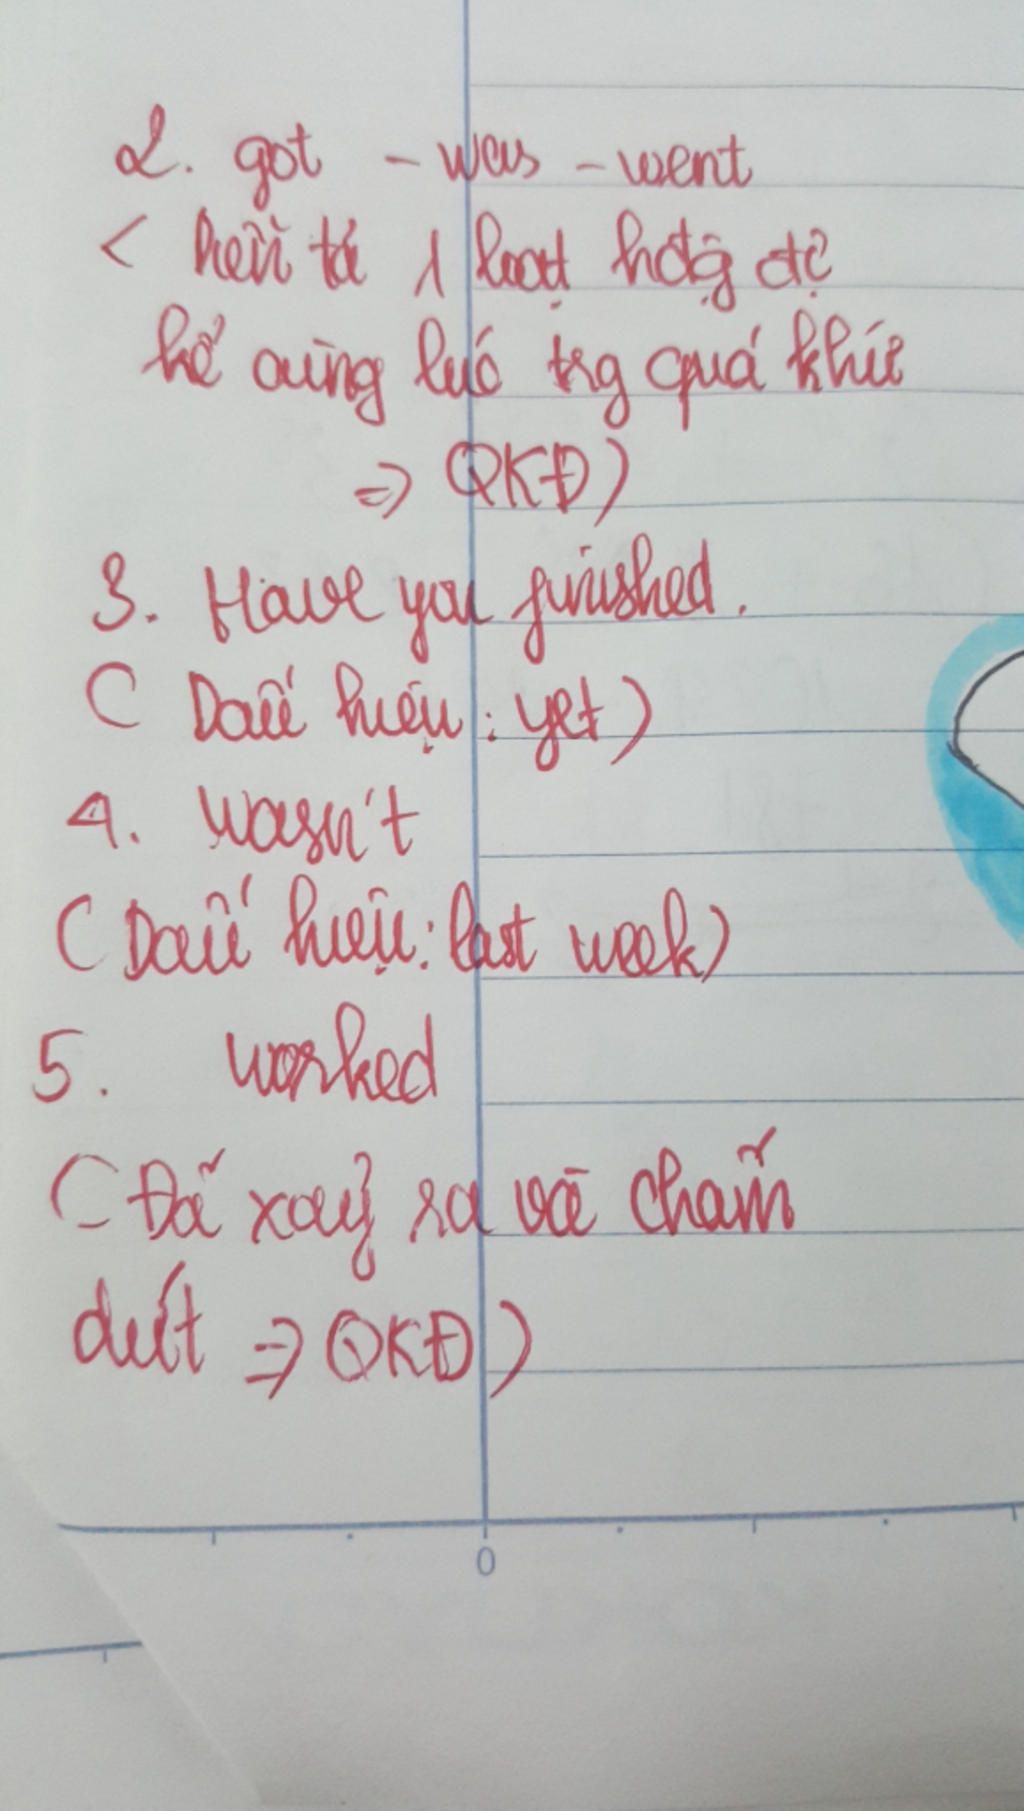 2. got - was - went
( Diễn tả 1 loạt hđộg
kể cùng lúc trg quá khứ
=> QKĐ)
3. Have you finished.
( Dấu hiệu : yet)
4. wasn't
( Dấu hiệu : last week)
5. worked
( Đã xảy ra và chấm
dứt => QKĐ)
0